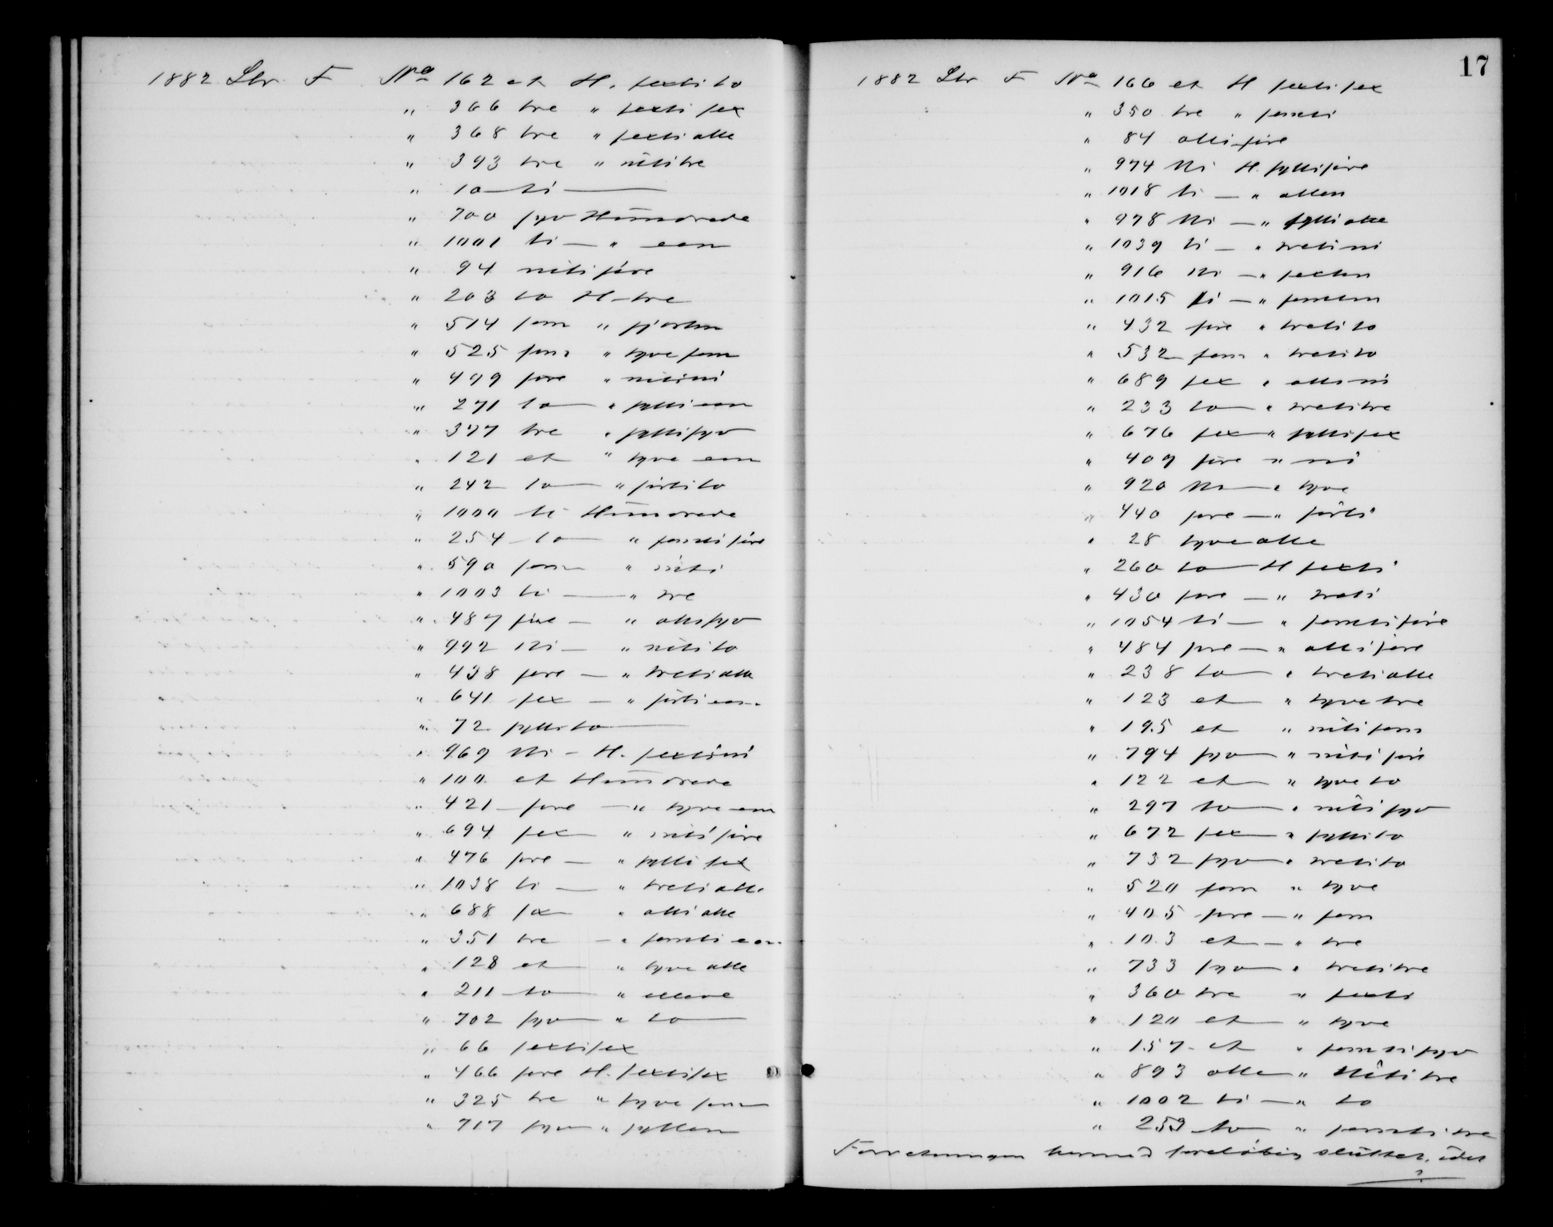 1882 Ltr. F No 162 et H. sexti to
" 366 tre " sexti sex
" 368 tre " sexti otte
" 393 tre " niti tre
" 10 ti —
" 700 syv Hundrede
" 1001 ti — " een
" 94 niti fire
" 203 to H- tre
" 514 fem " fjorten
" 525 fem " tyve fem
" 499 fire " niti ni
" 271 to — " sytti een
" 377 tre " sytti syv
" 121 et " tyve een
" 242 to — " förti to
" 1000 ti Hundrede
" 254 to — " femti fire
" 590 fem " niti
" 1003 ti — " tre
" 487 fire — " otti syv
" 992 Ni — " niti to
" 438 fire — " treti otte
" 641 sex — " förti een
" 72 sytti to —
" 969 Ni — H. sexti ni
" 100 et Hundrede
" 421 fire — " tyve een
" 694 sex " niti fire
" 476 fire — " sytti sex
" 1038 ti — " treti otte
" 688 sex " otti otte
" 351 tre — " femti een
" 128 et " tyve otte
" 211 to " elleve
" 702 syv " to —
" 66 sexti sex
" 466 fire H. sexti sex
" 325 tre " tyve fem
" 717 syv " sytten
17
1882 Ltr F No 166 et H sexti sex
" 350 tre " femti
" 84 otti fire
" 974 Ni H. sytti fire
" 1018 ti — " atten
" 978 Ni — " sytti otte
" 1039 ti — " treti ni
" 916 Ni — " sexten
" 1015 ti — " femten
" 432 fire " treti to
" 532 fem " treti to
" 689 sex " otti ni
" 233 to — " treti tre
" 676 sex " sytti sex
" 409 fire " ni
" 920 Ni — " tyve
" 440 fire — " förti
" 28 tyve otte
" 260 to H sexti
" 430 fire — " treti
" 1054 ti — " femti fire
" 484 fire — " otti fire
" 238 to — " treti otte
" 123 et " tyve tre
" 195 et " niti fem
" 794 syv " niti fire
" 122 et " tyve to
" 297 to — " niti syv
" 672 sex " sytti to
" 732 syv " treti to
" 520 fem " tyve
" 405 fire — " fem
" 103 et — " tre
" 733 syv " treti tre
" 360 tre " sexti
" 120 et — " tyve
" 157 et " femti syv
" 893 otte " Niti tre
" 1002 ti — " to
" 253 to " femti tre
Forretningen hermed foreløbig sluttet, idet